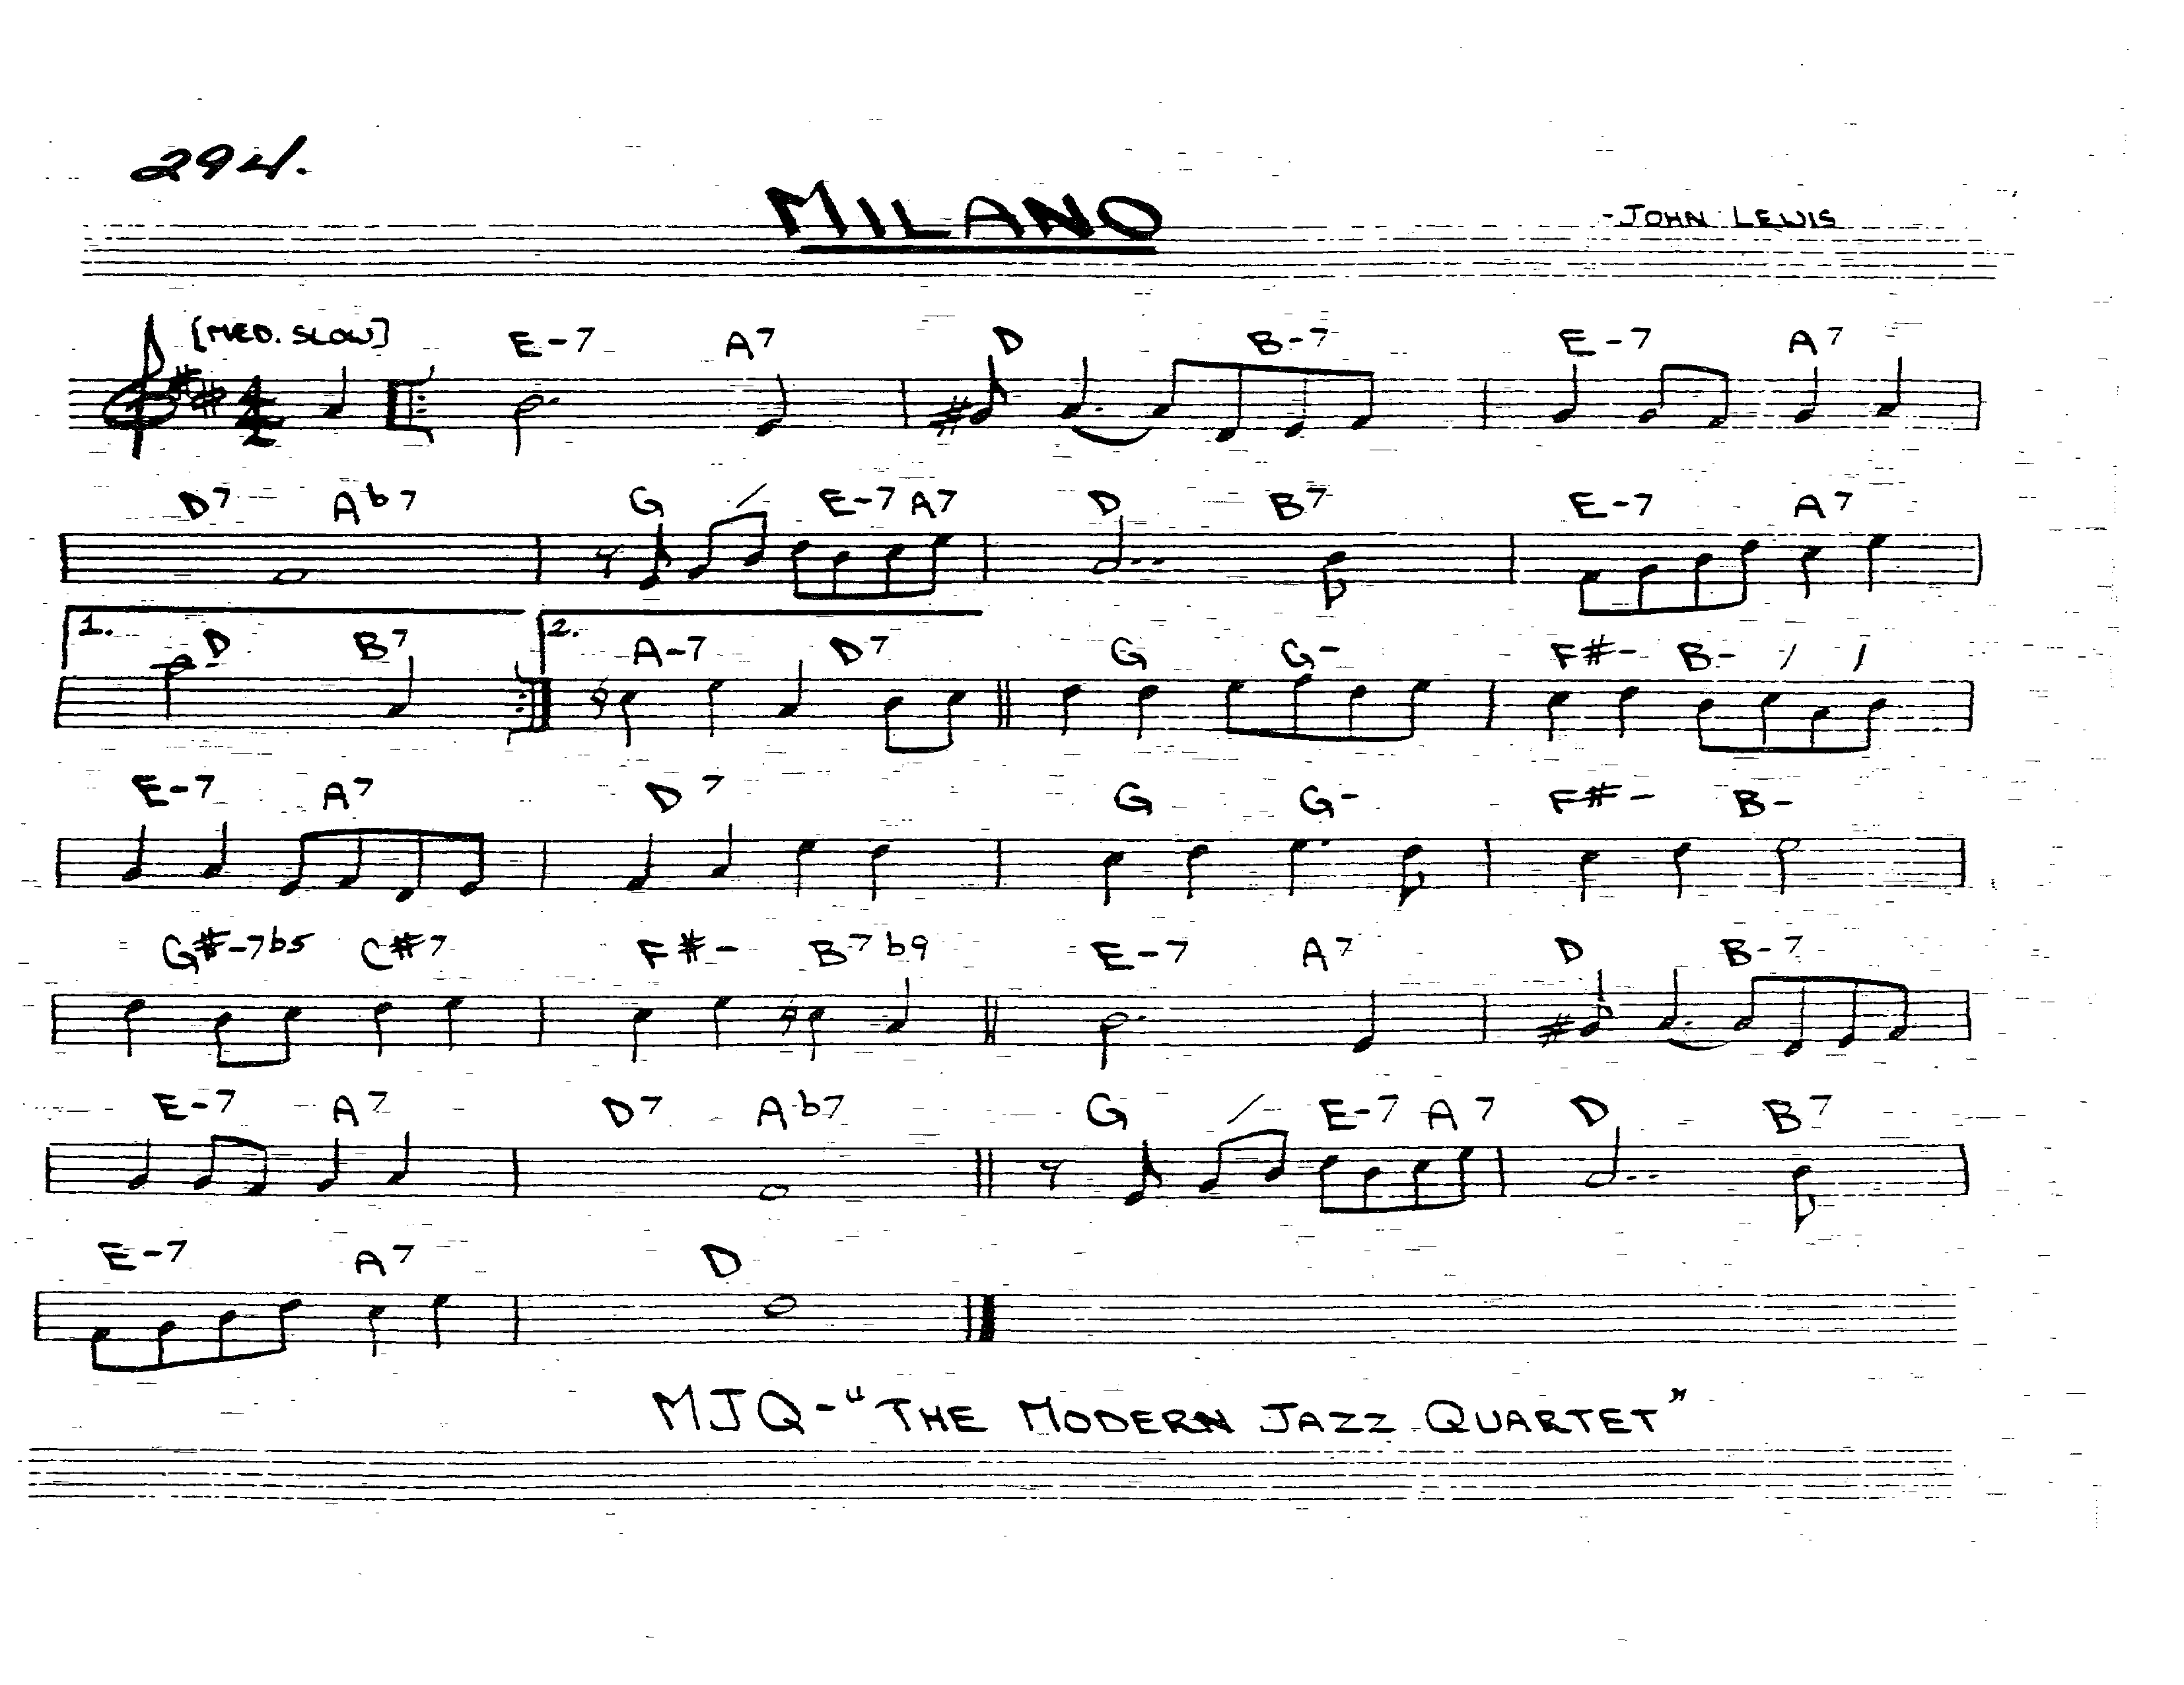 294.
MILANO
-JOHN LEWIS
[MED. SLOW]
E-7 A7 D B-7 E-7 A7
4/4
D7 Ab7 G / E-7 A7 D B7 E-7 A7
1. D B7 2. A-7 D7 G G- F#- B- / /
E-7 A7 D7 G G- F#- B-
G#-7b5 C#7 F#- B7b9 E-7 A7 D B-7
E-7 A7 D7 Ab7 G / E-7 A7 D B7
E-7 A7 D
MJQ-"THE MODERN JAZZ QUARTET"